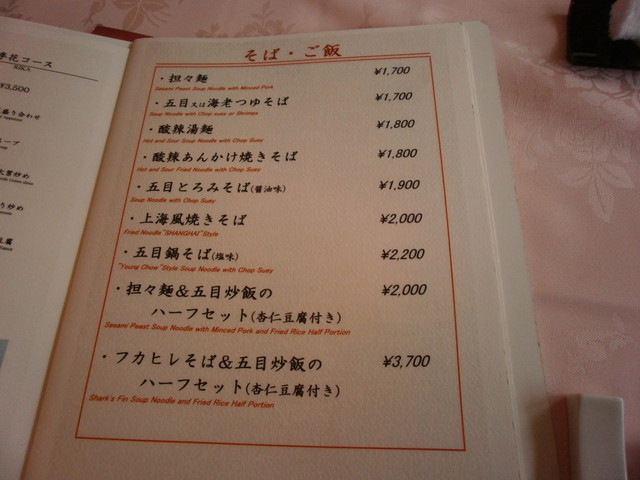 季花コース
KIKA
¥3,500
そば・ご飯
・担々麺 ¥1,700
Sesami Peast Soup Noodle with Minced Pork
・五目又は海老つゆそば ¥1,700
Soup Noodle with Chop suey or Shrimps
・酸辣湯麺 ¥1,800
Hot and Sour Soup Noodle with Chop Suey
・酸辣あんかけ焼きそば ¥1,800
Hot and Sour Fried Noodle with Chop Suey
・五目とろみそば(醤油味) ¥1,900
Soup Noodle with Chop Suey
・上海風焼きそば ¥2,000
Fried Noodle "SHANGHAI" Style
・五目鍋そば(塩味) ¥2,200
"Young Chow" Style Soup Noodle with Chop Suey
・担々麺&五目炒飯の ¥2,000
ハーフセット(杏仁豆腐付き)
Sesami Peast Soup Noodle with Minced Pork and Fried Rice Half Portion
・フカヒレそば&五目炒飯の ¥3,700
ハーフセット(杏仁豆腐付き)
Shark's Fin Soup Noodle and Fried Rice Half Portion